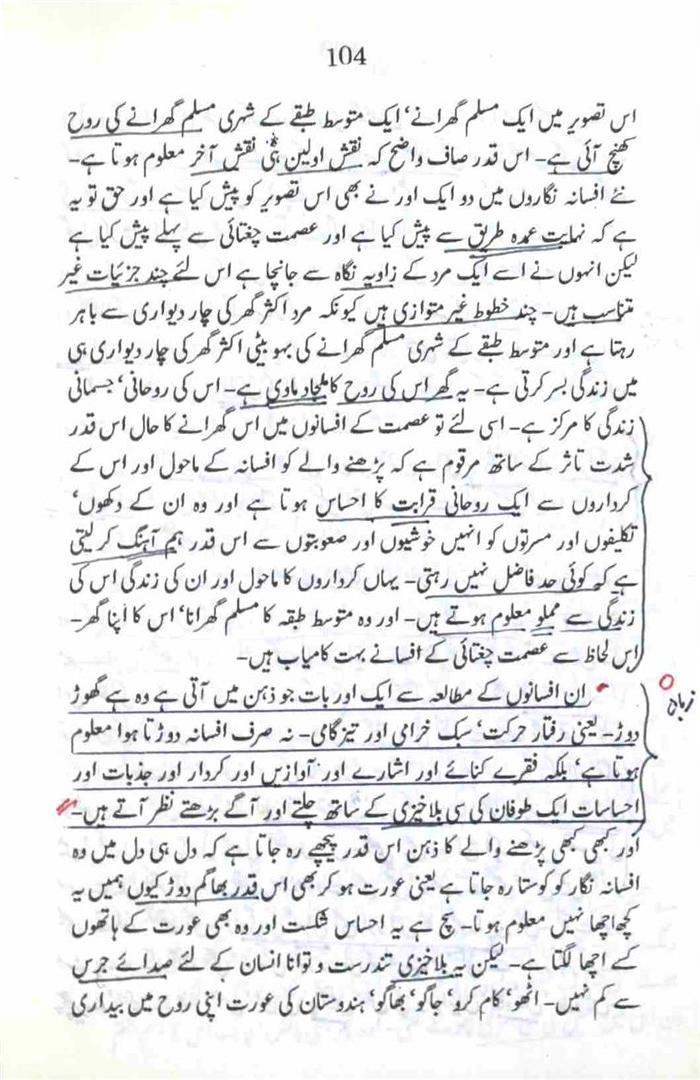 104
اس تصویر میں ایک مسلم گھرانے، ایک متوسط طبقے کے شہری مسلم گھرانے کی روح
کھنچ آئی ہے۔ اس قدر صاف واضح کہ نقش اولین ہی نقش آخر معلوم ہوتا ہے۔
نئے افسانہ نگاروں میں دو ایک اور نے بھی اس تصویر کو پیش کیا ہے اور حق تو یہ
ہے کہ نہایت عمدہ طریق سے پیش کیا ہے اور عصمت چغتائی سے پہلے پیش کیا ہے
لیکن انہوں نے اسے ایک مرد کے زاویہ نگاہ سے جانچا ہے اس لئے چند جزئیات غیر
متناسب ہیں۔ چند خطوط غیر متوازی ہیں کیونکہ مرد اکثر گھر کی چار دیواری سے باہر
رہتا ہے اور متوسط طبقے کے شہری مسلم گھرانے کی بہو بیٹی اکثر گھر کی چار دیواری ہی
میں زندگی بسر کرتی ہے۔ یہ گھر اس کی روح کا ملجاد ماوی ہے۔ اس کی روحانی، جسمانی
زندگی کا مرکز ہے۔ اسی لئے تو عصمت کے افسانوں میں اس گھرانے کا حال اس قدر
شدت تاثر کے ساتھ مرقوم ہے کہ پڑھنے والے کو افسانہ کے ماحول اور اس کے
کرداروں سے ایک روحانی قرابت کا احساس ہوتا ہے اور وہ ان کے دکھوں،
تکلیفوں اور مسرتوں کو انہیں خوشیوں اور صعوبتوں سے اس قدر ہم آہنگ کر لیتی
ہے کہ کوئی حد فاضل نہیں رہتی۔ یہاں کرداروں کا ماحول اور ان کی زندگی اس کی
زندگی سے مملو معلوم ہوتے ہیں۔ اور وہ متوسط طبقہ کا مسلم گھرانا، اس کا اپنا گھر۔
اس لحاظ سے عصمت چغتائی کے افسانے بہت کامیاب ہیں۔
ان افسانوں کے مطالعہ سے ایک اور بات جو ذہن میں آتی ہے وہ ہے گھوڑ
زبان
دوڑ۔ یعنی رفتار حرکت، سبک خرامی اور تیز گامی۔ نہ صرف افسانہ دوڑتا ہوا معلوم
ہوتا ہے، بلکہ فقرے کنائے اور اشارے اور آوازیں اور کردار اور جذبات اور
احساسات ایک طوفان کی سی بلاخیزی کے ساتھ چلتے اور آگے بڑھتے نظر آتے ہیں۔
اور کبھی کبھی پڑھنے والے کا ذہن اس قدر پیچھے رہ جاتا ہے کہ دل ہی دل میں وہ
افسانہ نگار کو کوستا رہ جاتا ہے یعنی عورت ہو کر بھی اس قدر بھاگم دوڑ کیوں ہمیں یہ
کچھ اچھا نہیں معلوم ہوتا۔ سچ ہے یہ احساس شکست اور وہ بھی عورت کے ہاتھوں
کسے اچھا لگتا ہے۔ لیکن یہ بلاخیزی تندرست و توانا انسان کے لئے صدائے جرس
سے کم نہیں۔ اٹھو، کام کرو، جاگو، بھاگو، ہندوستان کی عورت اپنی روح میں بیداری